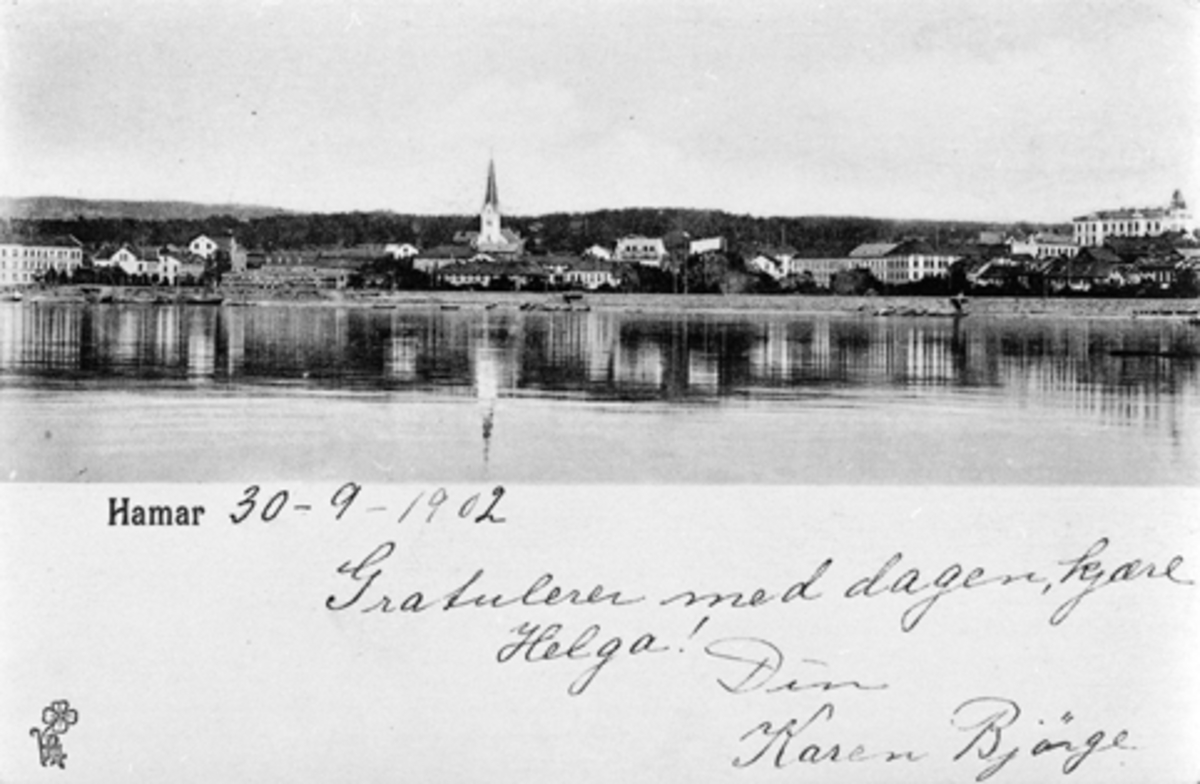 Hamar 30-9-1902
Gratulerer med dagen, kjære
Helga!
Din
Karen Bjørge